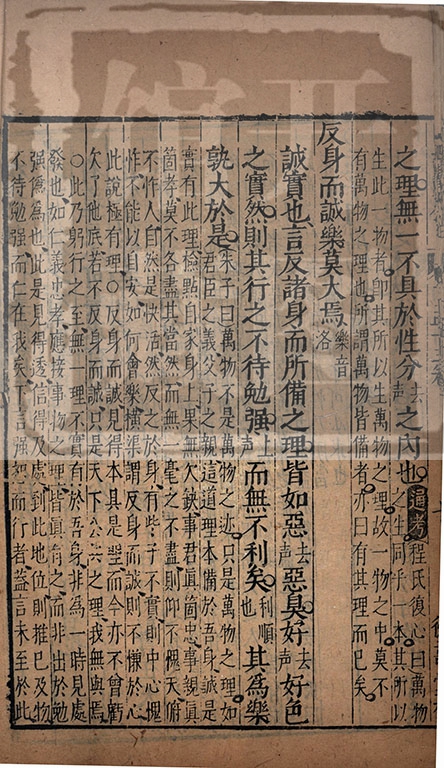 之理無一不具於性分去聲之内也通考程氏復心曰萬物之生同乎一本其所以
生此一物者即其所以生萬物之理故一物之中莫不
有萬物之理也所謂萬物皆備者亦曰有其理而已矣
反身而誠樂莫大焉樂音洛
誠實也言反諸身而所備之理皆如惡去聲惡臭好去聲好色
之實然則其行之不待勉強上聲而無不利矣利順也其為樂
孰大於是朱子曰萬物不是萬物之迹只是萬物之理如
君臣之義父子之親這道理本備於吾身誠是
實有此理檢點自家身上果無欠缺事君真箇忠事親真
箇孝莫不各盡其當然而無一毫之不盡則仰不愧天俯
不怍人自然是快活然反之於身有些子不實則中心愧
怍不能以自安如何會樂橫渠謂反身而誠則不慊於心
此說極有理○反身而誠見得本具是理而今亦不曾虧
欠了他底若不反身而誠只是天下公共之理我無與焉
○此乃躬行之至無一理不實有於吾身非為一時見處
發也如仁義忠孝應接事物之理皆真有之而非出於勉
強為為也此是見得透信得及處到此地位則推己及物
不待勉強而仁在我矣下言強恕而行者蓋言未至於此